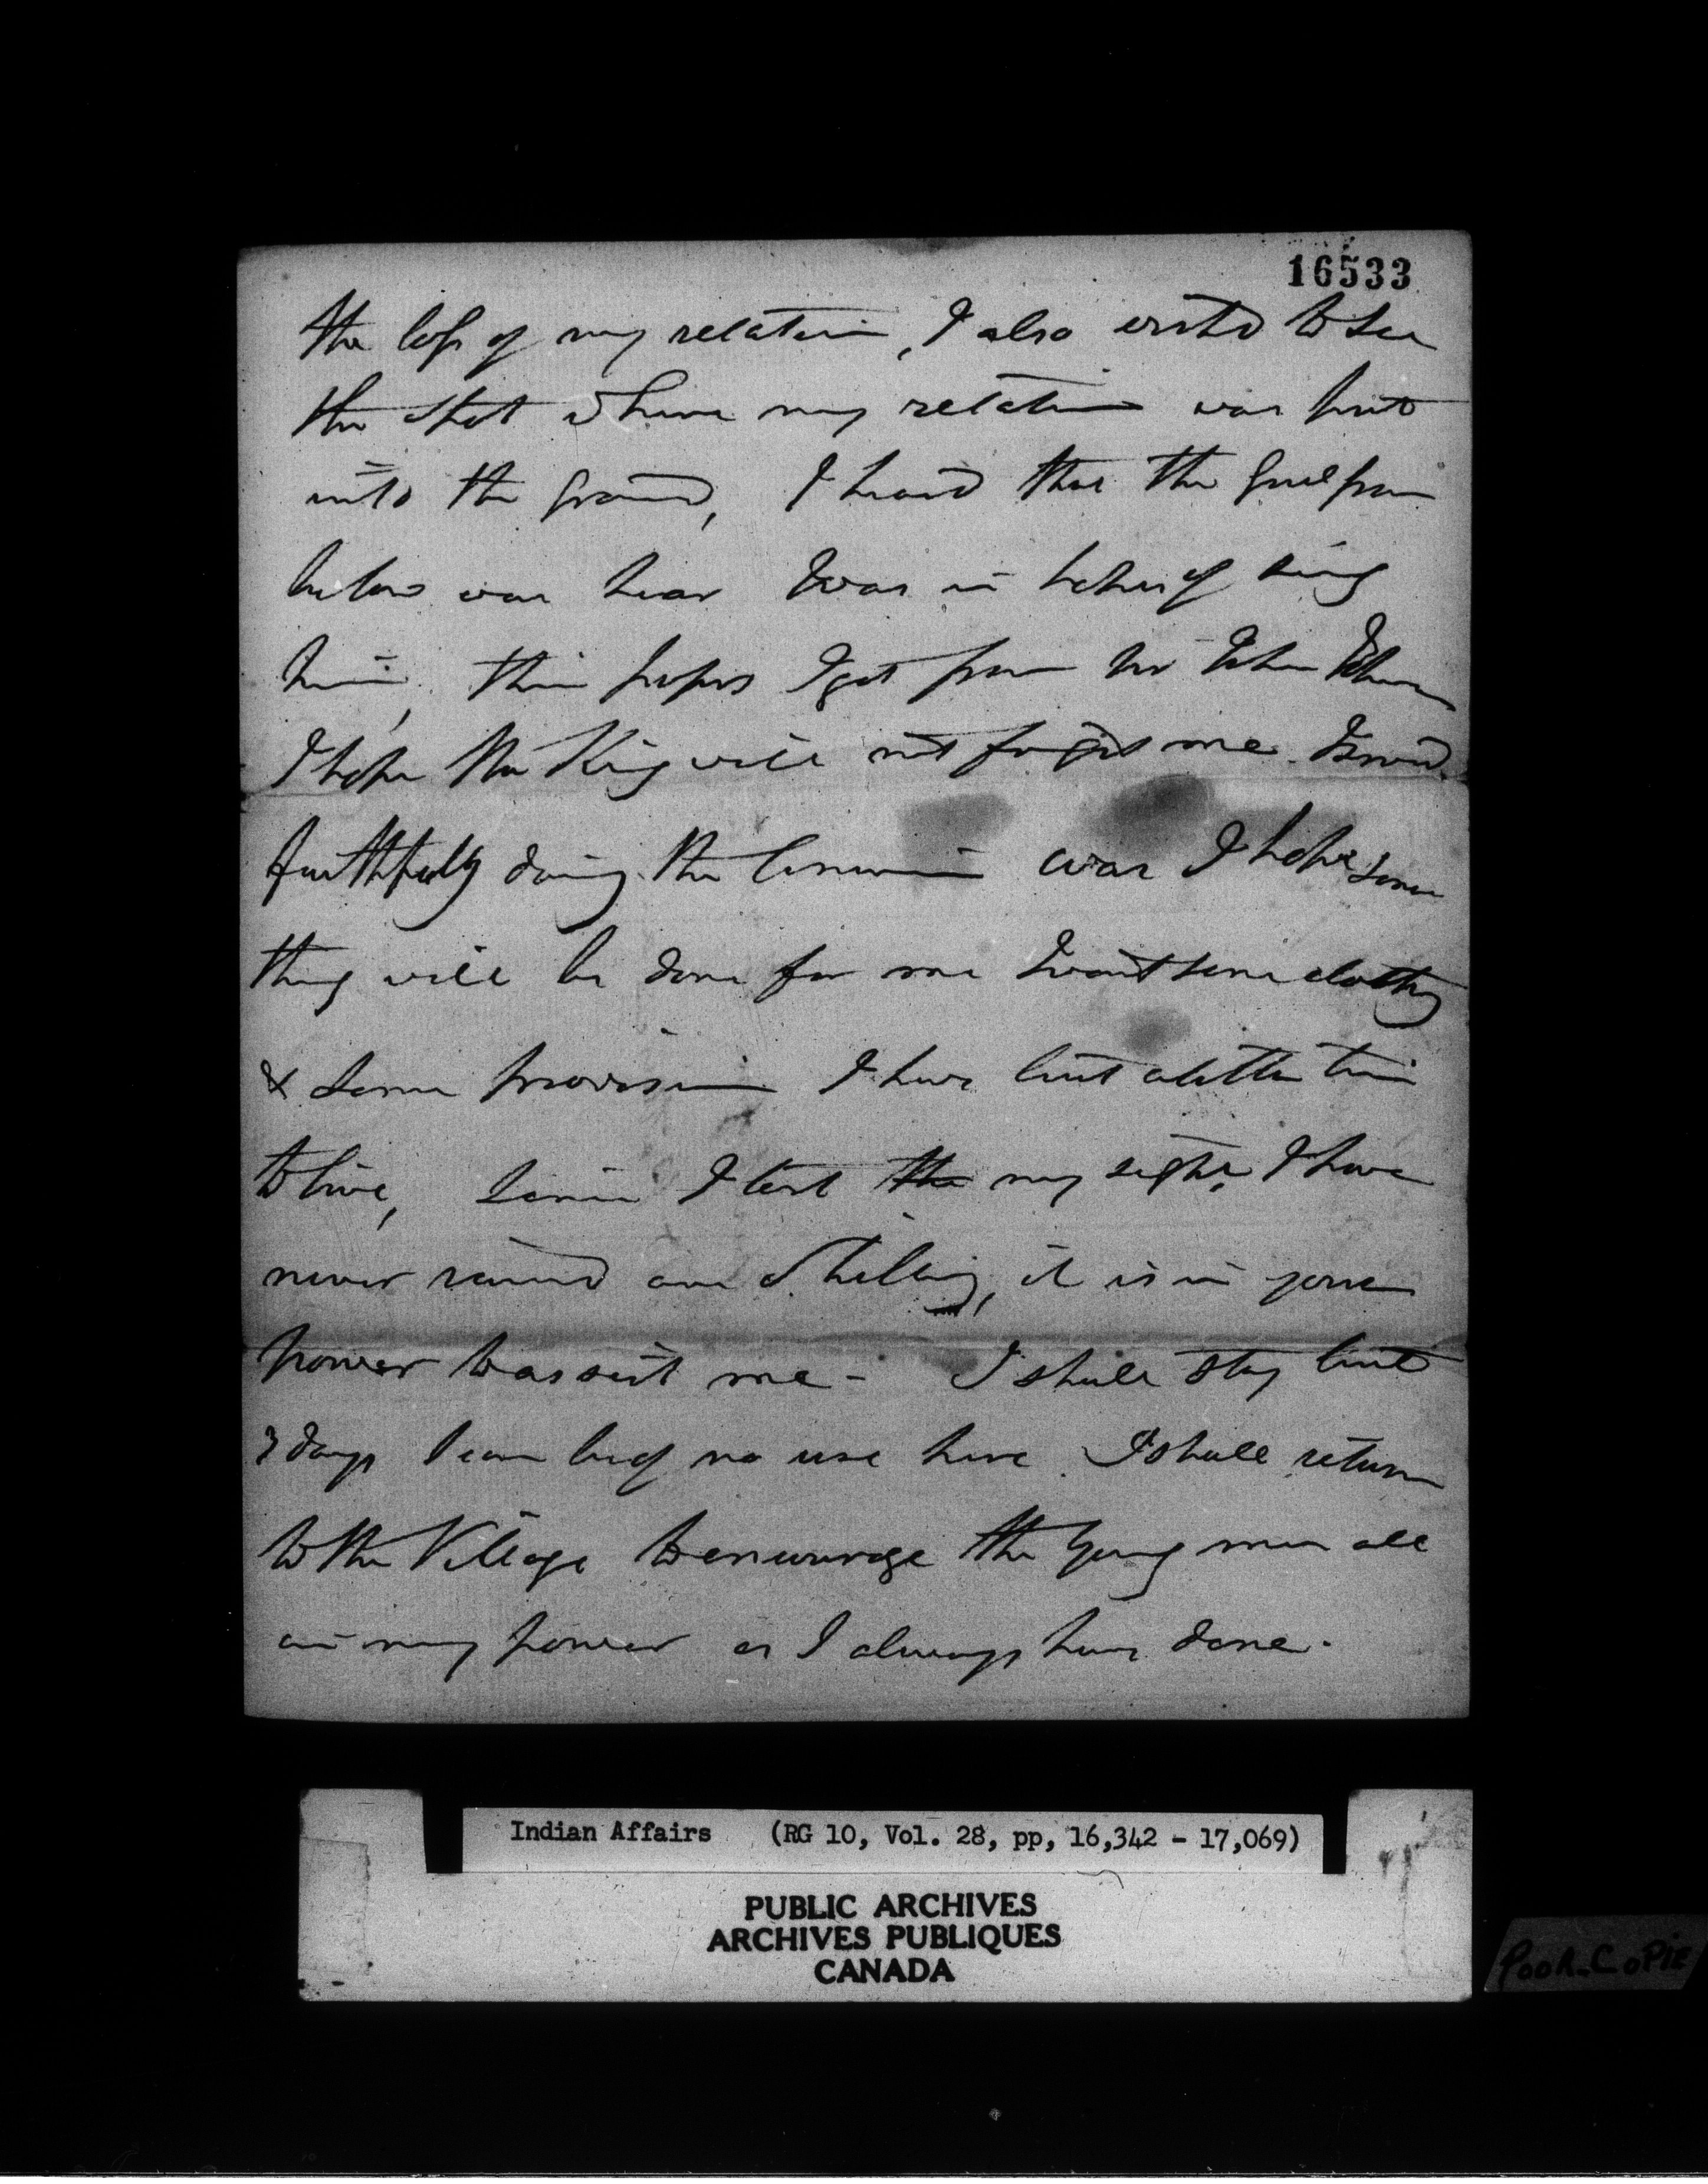 16533
the loss of my relation, I also wish'd to see
the spot where my relation was put
into the ground, I heard that the Genl from
below was hear I was in hopes of seing
him, this papers I got from Sir John Johnson
I hope the King will not forget me. I served
faithfully during the American war I hope some
thing will be done for me I want some clothing
& some provision I have but alittle time
to live, Since I lost the my sight, I have
never received one Shilling, it is in your
power to assist me - I shall stay but
3 days I can be of no use here. I shall return
to the Village to encourage the Young men all
in my power as I always have done.
Indian Affairs (RG 10, Vol. 28, pp, 16,342 - 17,069)
PUBLIC ARCHIVES
ARCHIVES PUBLIQUES
CANADA
POOR-COPIE